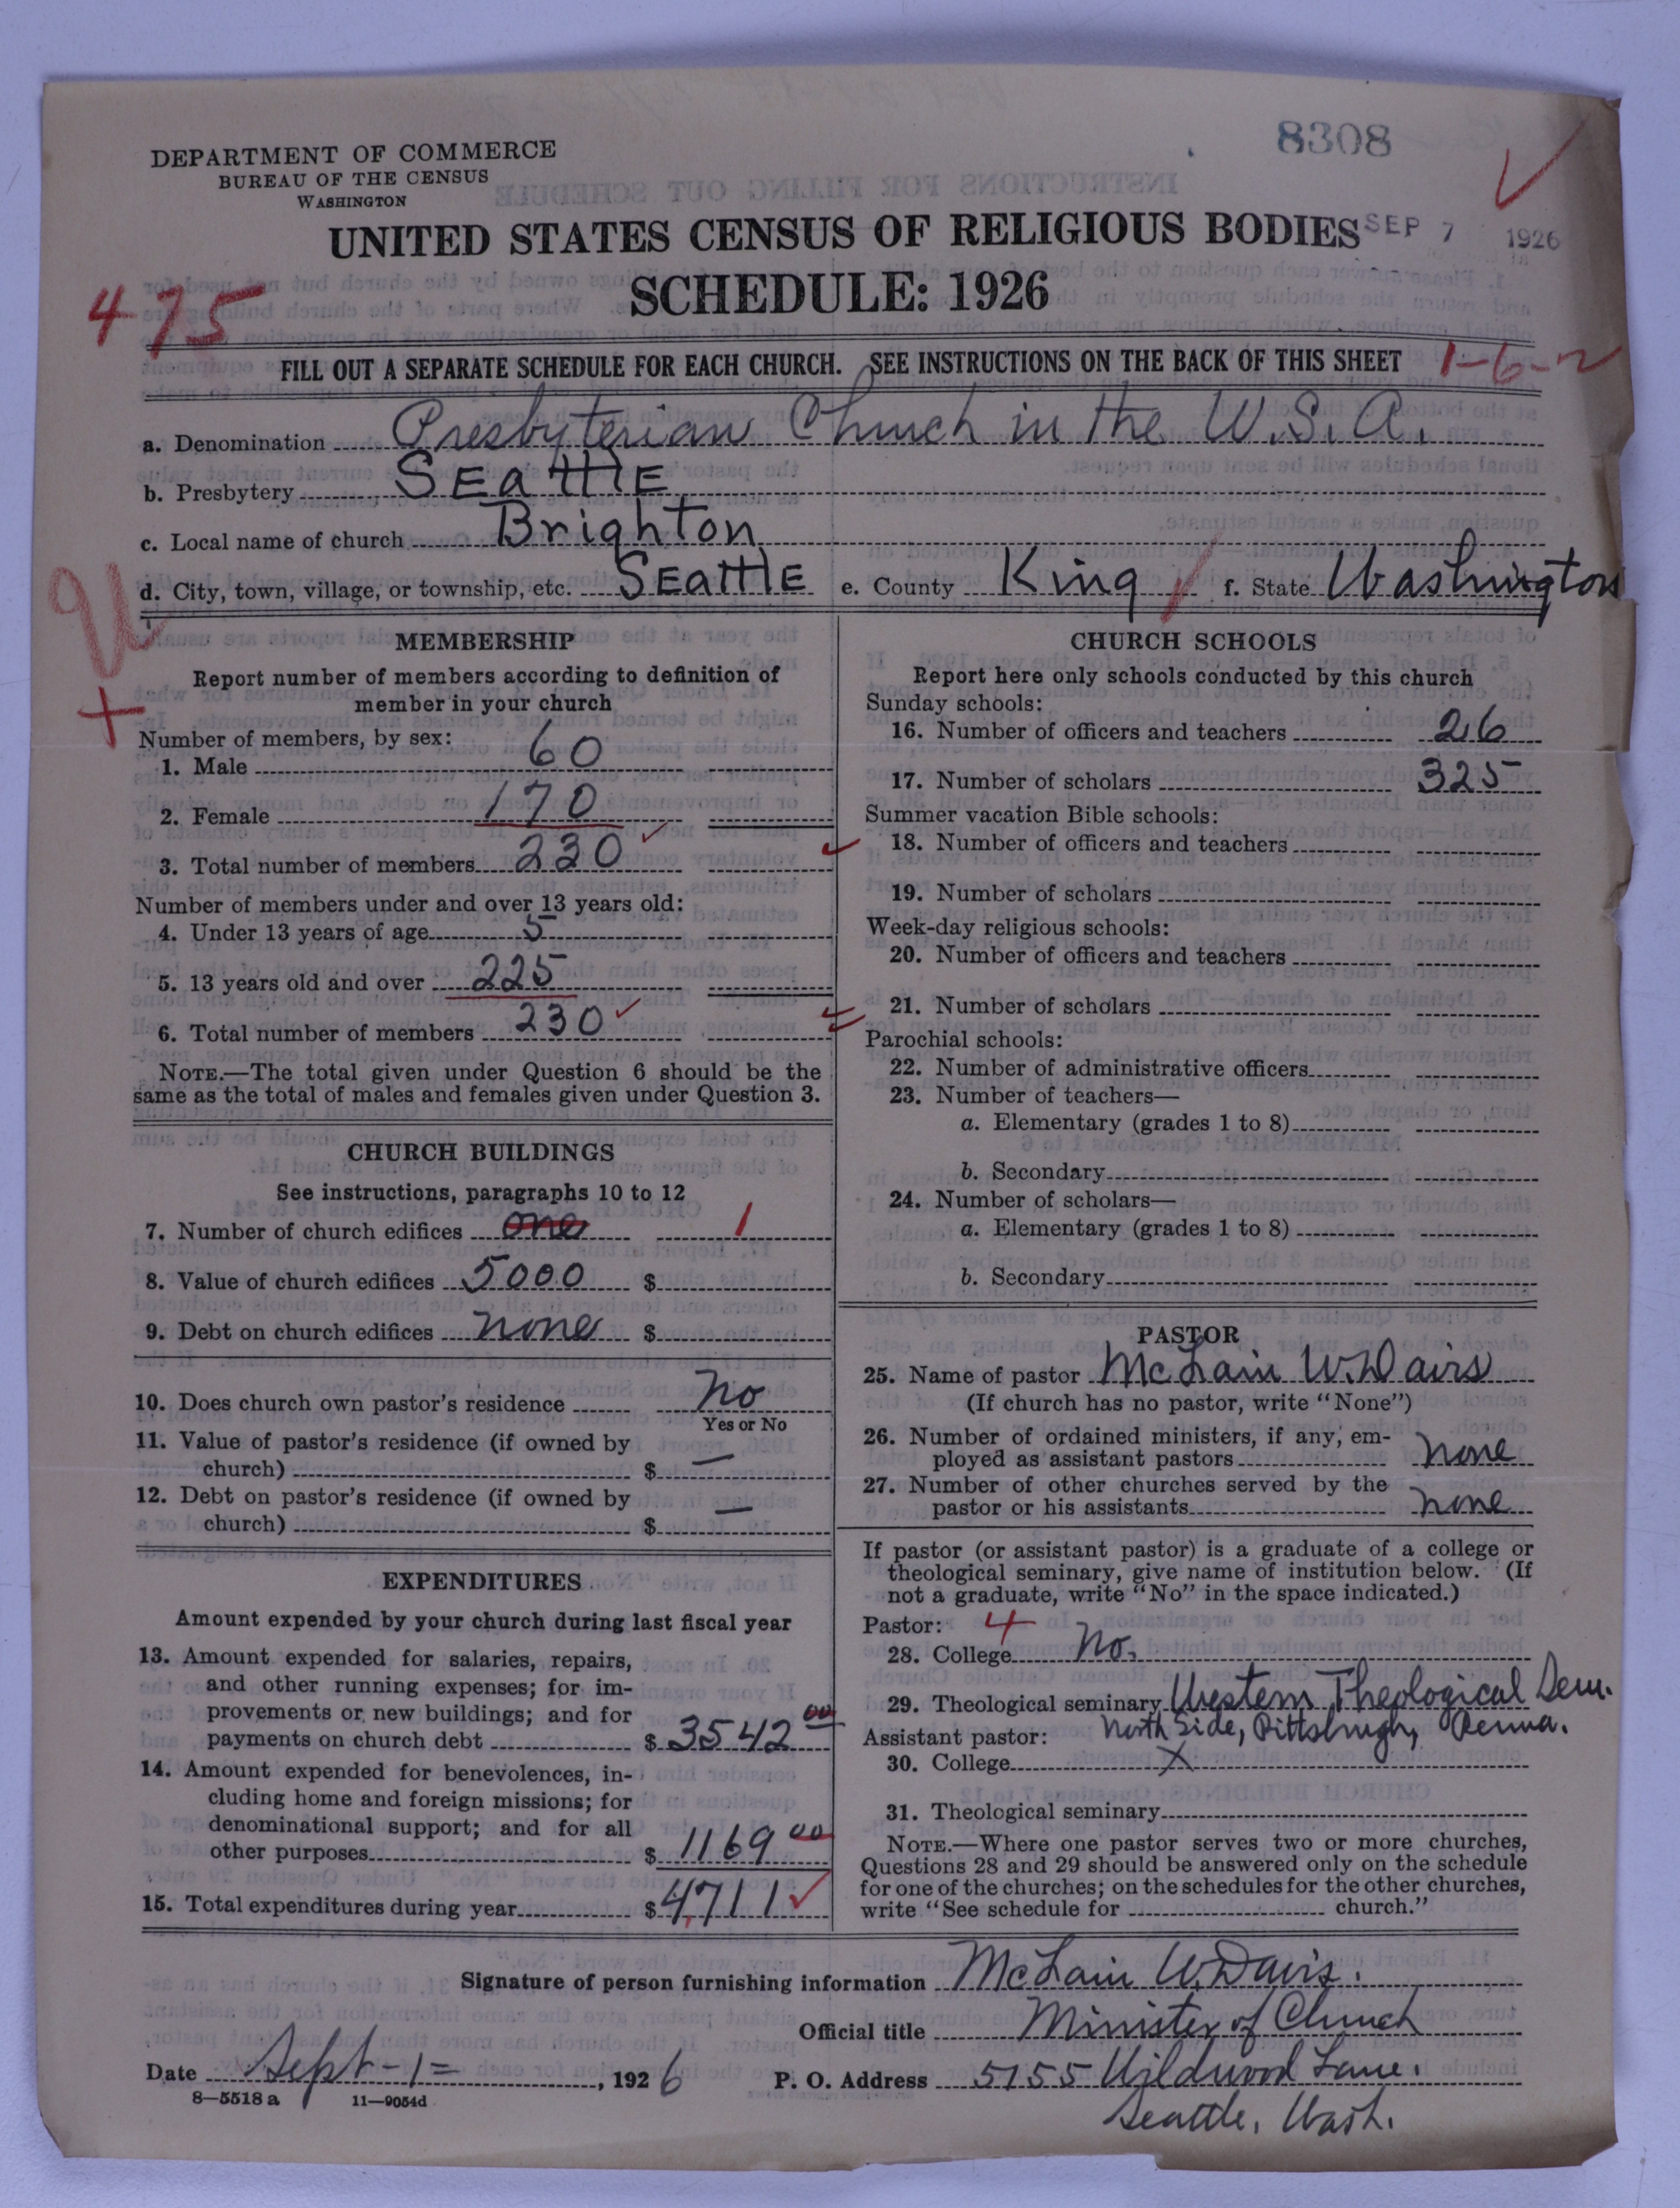 8308
DEPARTMENT OF COMMERCE
BUREAU OF THE CENSUS
WASHINGTON
UNITED STATES CENSUS OF RELIGIOUS BODIES
SEP 7 1926
SCHEDULE: 1926
475
FILL OUT A SEPARATE SCHEDULE FOR EACH CHURCH. SEE INSTRUCTIONS ON THE BACK OF THIS SHEET
1-6-2
a. Denomination Presbyterian Church in the U.S.A.
b. Presbytery Seattle
c. Local name of church Brighton
d. City, town, village, or township, etc. Seattle e. County King f. State Washington
U
+
MEMBERSHIP
Report number of members according to definition of
member in your church
Number of members, by sex:
1. Male 60
2. Female 170
3. Total number of members 230
Number of members under and over 13 years old:
4. Under 13 years of age 5
5. 13 years old and over 225
6. Total number of members 230
NOTE.—The total given under Question 6 should be the
same as the total of males and females given under Question 3.
CHURCH BUILDINGS
See instructions, paragraphs 10 to 12
7. Number of church edifices one 1
8. Value of church edifices 5000 $
9. Debt on church edifices none $
10. Does church own pastor's residence No
Yes or No
11. Value of pastor's residence (if owned by
church) $ —
12. Debt on pastor's residence (if owned by
church) $ —
EXPENDITURES
Amount expended by your church during last fiscal year
13. Amount expended for salaries, repairs,
and other running expenses; for im-
provements or new buildings; and for
payments on church debt $ 3542 00
14. Amount expended for benevolences, in-
cluding home and foreign missions; for
denominational support; and for all
other purposes $ 1169 00
15. Total expenditures during year $ 4,711
CHURCH SCHOOLS
Report here only schools conducted by this church
Sunday schools:
16. Number of officers and teachers 26
17. Number of scholars 325
Summer vacation Bible schools:
18. Number of officers and teachers
19. Number of scholars
Week-day religious schools:
20. Number of officers and teachers
21. Number of scholars
Parochial schools:
22. Number of administrative officers
23. Number of teachers—
a. Elementary (grades 1 to 8)
b. Secondary
24. Number of scholars—
a. Elementary (grades 1 to 8)
b. Secondary
PASTOR
25. Name of pastor McLain W. Davis
(If church has no pastor, write "None")
26. Number of ordained ministers, if any, em-
ployed as assistant pastors none
27. Number of other churches served by the
pastor or his assistants none
If pastor (or assistant pastor) is a graduate of a college or
theological seminary, give name of institution below. (If
not a graduate, write "No" in the space indicated.)
Pastor: 4
28. College No.
29. Theological seminary Western Theological Sem.
North Side, Pittsburgh, Penna.
Assistant pastor:
30. College X
31. Theological seminary
NOTE.—Where one pastor serves two or more churches,
Questions 28 and 29 should be answered only on the schedule
for one of the churches; on the schedules for the other churches,
write "See schedule for church."
Signature of person furnishing information McLain W. Davis.
Official title Minister of Church
Date Sept-1=, 1926 P. O. Address 5155 Wildwood Lane.
Seattle, Wash.
8—5518 a 11—9054d